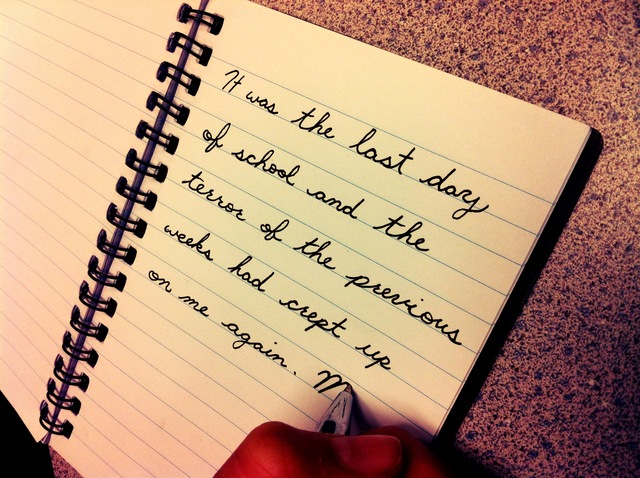 It was the last day
of school and the
terror of the previous
weeks had crept up
on me again. M